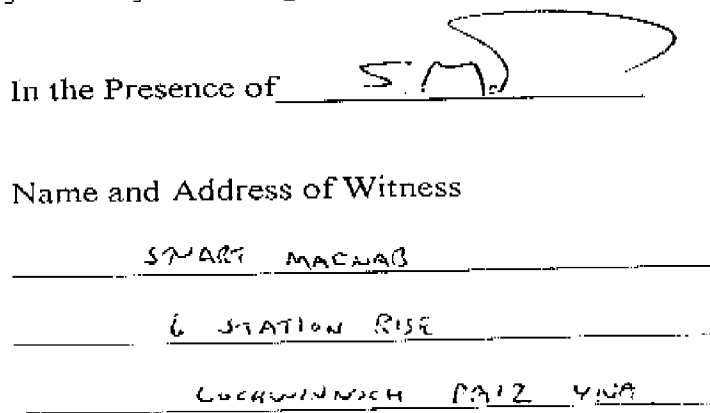 In the Presence of
Name and Address of Witness
STUART MACNAB
6 STATION RISE
LOCHWINNOCH PA12 4NA